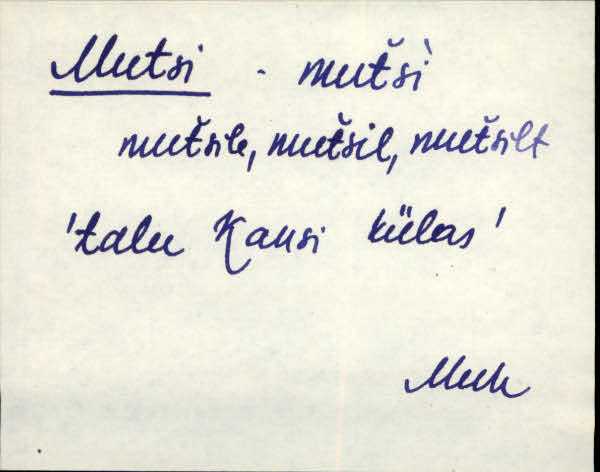 Mutsi - mutši̬
mutšile, mutšil, mutšilt
'talu Kausi külas'
Muh